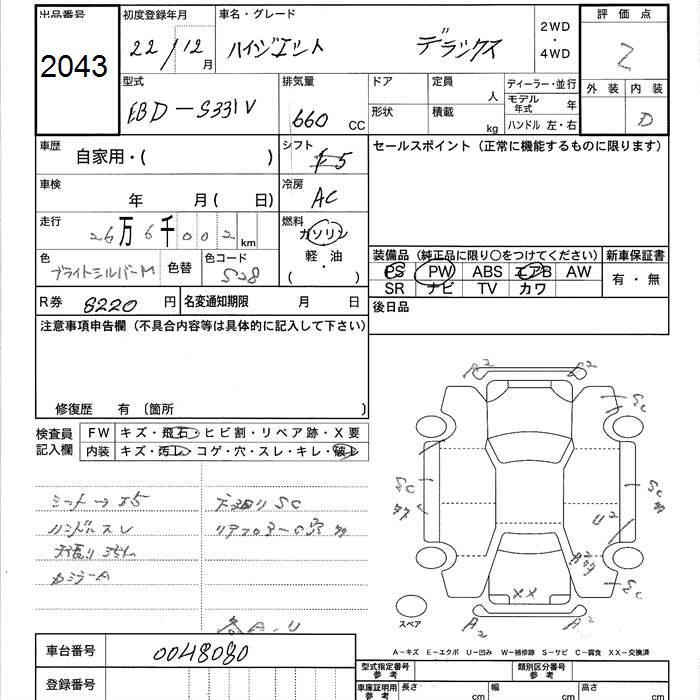 出品番号 初度登録年月 車名・グレード 2WD・4WD 評価点
2043 22/12月 ハイゼット デラックス 2
型式 排気量 ドア 定員 人 ディーラー・並行 外装 内装
EBD-S331V 660 CC 形状 積載 kg モデル年式 年 D
ハンドル 左・右
車歴 自家用・( ) シフト F5 セールスポイント(正常に機能するものに限ります)
車検 年 月( 日) 冷房 AC
走行 26万6千002km 燃料 ガソリン
軽・油
( ・ )
色 ブライトシルバーM 色替 色コード S28
装備品(純正品に限り○をつけてください) 新車保証書
PS PW ABS エアB AW 有・無
SR ナビ TV カワ
R券 8220円 名変通知期限 月 日 後日品
注意事項申告欄(不具合内容等は具体的に記入して下さい)
修復歴 有〔箇所 〕
検査員記入欄 FW キズ・飛石・ヒビ割・リペア跡・X要
内装 キズ・汚レ・コゲ・穴・スレ・キレ・破レ
A2 S2
SC
SC
SC
U2
SC
XX
A2 A2
ハンドルスレ
各A.U
スペア
A-キズ E-エクボ U-凹み W-補修跡 S-サビ C-腐食 XX-交換済
車台番号 0048080
登録番号
型式指定番号 参考 類別区分番号 参考
車庫証明用 参考 長さ cm 幅 cm 高さ cm